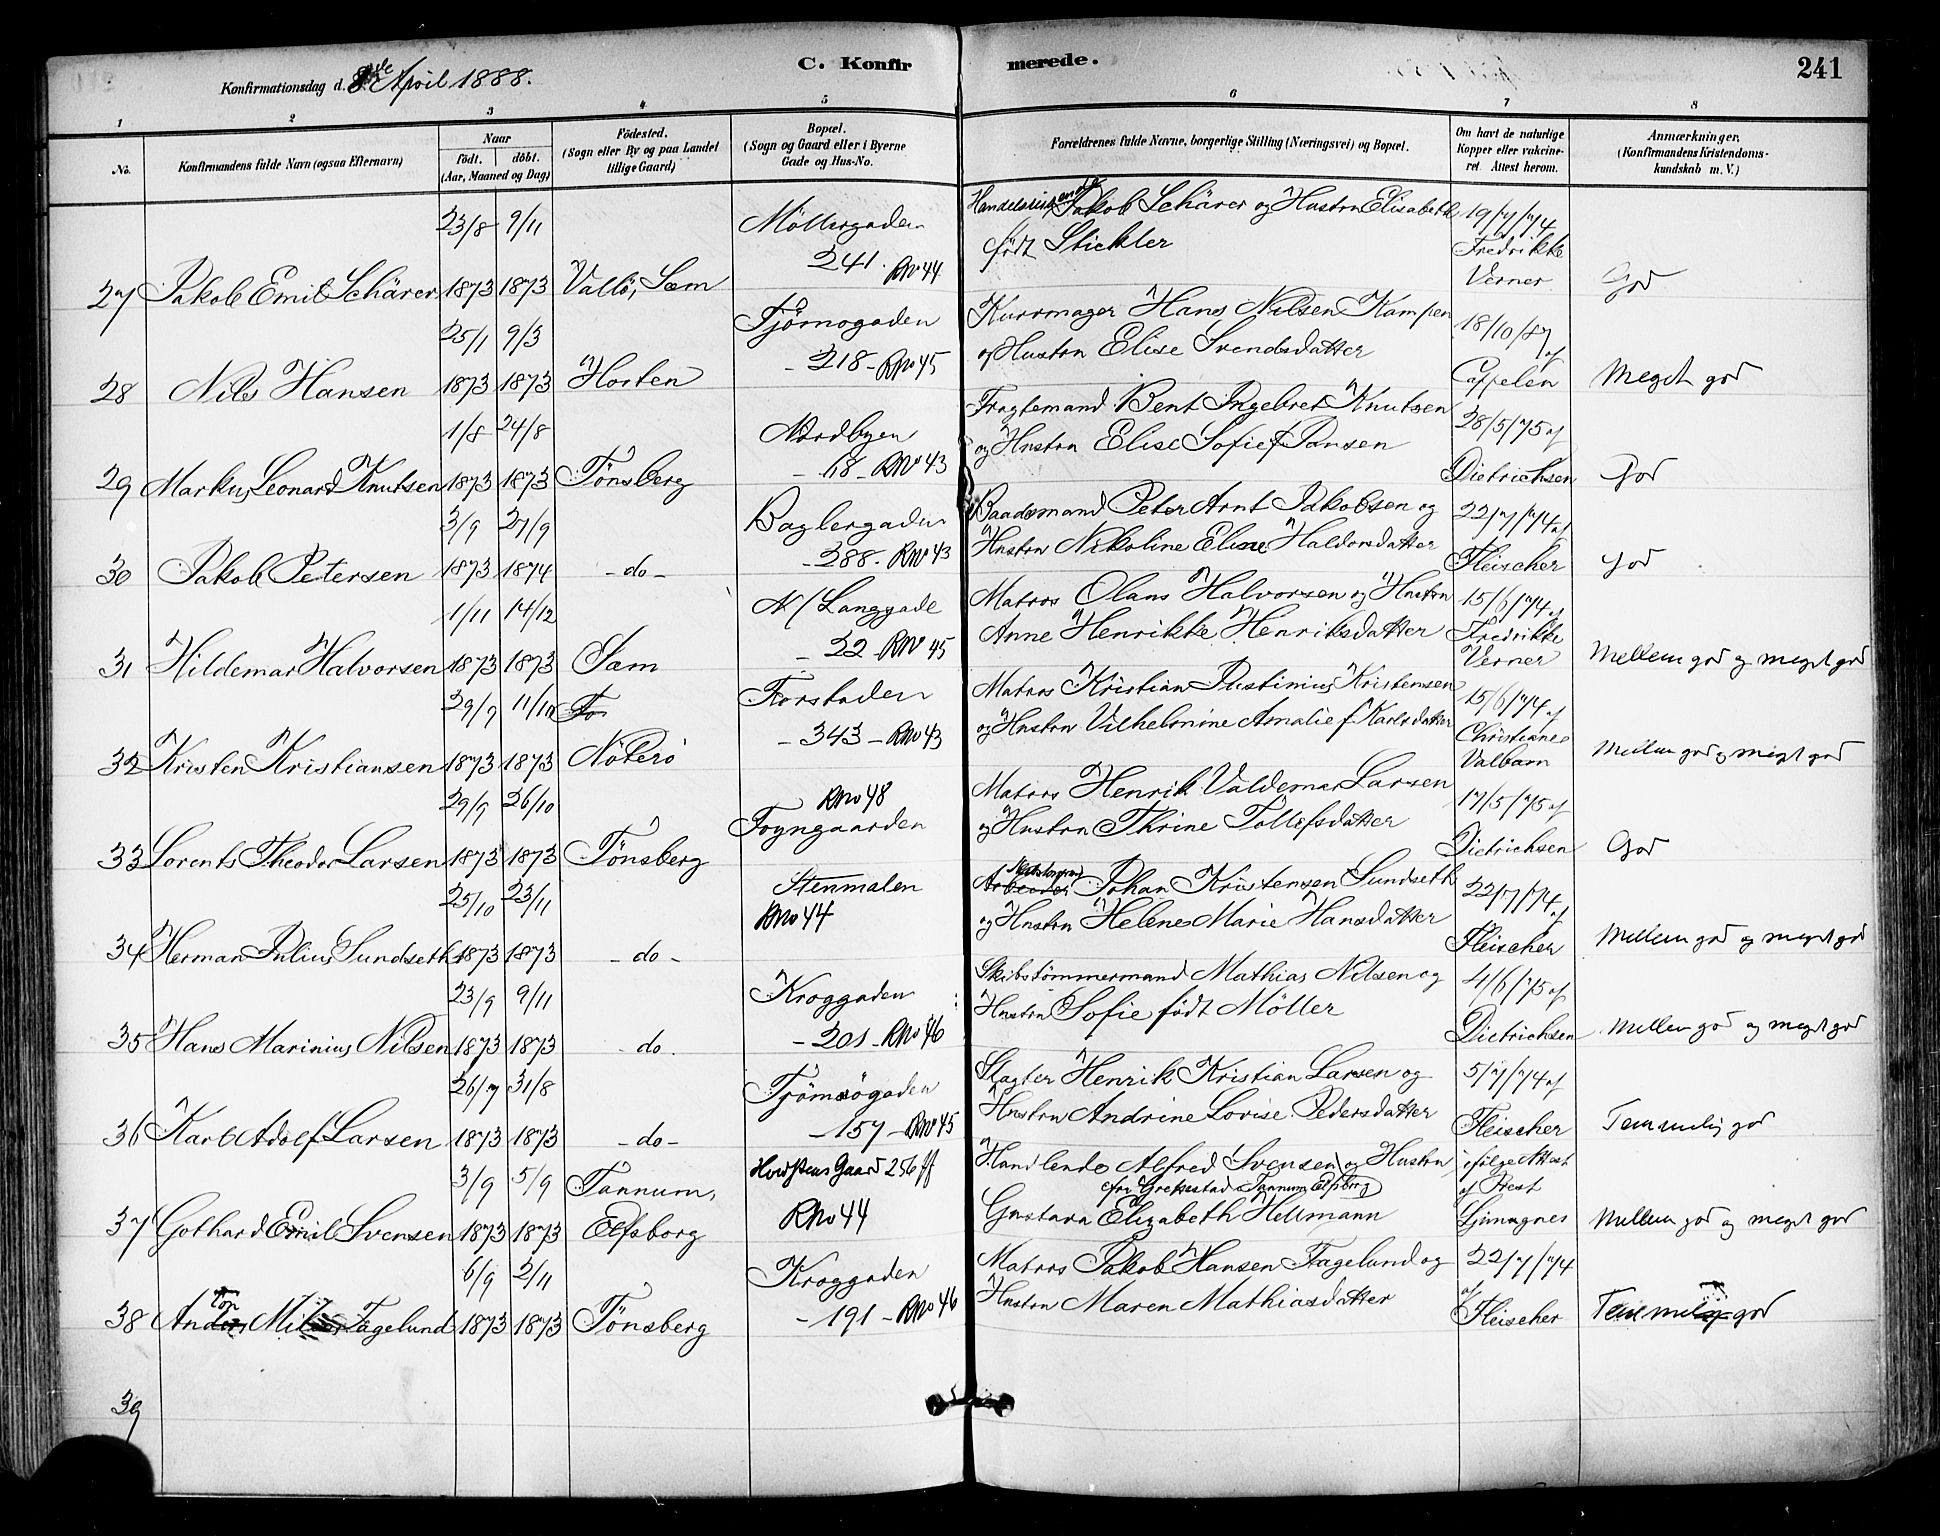 Konfirmationsdag d. 8de April 1888.
C. Konfirmerede.
241
1 2 3 4 5 6 7 8
No. Konfirmandens fulde Navn (ogsaa Efternavn) Naar födt. döbt. (Aar, Maaned og Dag) Födested. (Sogn eller By og paa Landet tillige Gaard) Bopæl. (Sogn og Gaard eller i Byerne Gade og Hus-No. Forældrenes fulde Navne, borgerlige Stilling (Næringsvei) og Bopæl. Om havt de naturlige Kopper eller vakcineret. Attest herom. Anmærkninger. (Konfirmandens Kristendomskundskab m. V.)
23/8 9/11 Möllergaden Jakob Schärer og Hustru Elisabeth 19/7/74
241. RNo 44 födt Stickler Fredrikke
27 Jakob Emil Schärer 1873 1873 Vallö, Sem Verner God
25/1 9/3 Tjömogaden Kurvmager Hans Nilsen Kampen 18/10/87 af
- 218 - RNo 45 og Hustru Elise Svendsdatter
28 Nils Hansen 1873 1873 Horten Cappelen Meget god
1/8 24/8 Nordbyen Fragtemand Bent Ingebret Knutsen 28/5/75 af
- 68 - RNo 43 og Hustru Elise Sofie f. Jansen
29 Markus Leonard Knutsen 1873 1873 Tönsberg Dietrichsen God
3/9 27/9 Baglergaden Baadsmand Peter Arnt Jakobsen og 22/7/74 af
- 288. RNo 43 Hustru Nikoline Eline Haldorsdatter
30 Jakob Petersen 1873 1874 - do - Fleischer God
1/11 14/12 N/ Langgade Matros Olaus Halvorsen og Hustru 15/6/74 af
- 22 - RNo 45 Anne Henrikke Henriksdatter Fredrikke
31 Hildemar Halvorsen 1873 1873 Sem Verner Mellem god og meget god
29/9 11/10 Forstaden Matros Kristian Justinius Kristensen 15/6/74 af
- 343 - RNo 43 og Hustru Vilhelmine Amalie f. Karlsdatter Christiane
32 Kristen Kristiansen 1873 1873 Nöterö Valbarn Mellem god og meget god
29/9 26/10 RNo 48 Matros Henrik Valdemar Larsen 17/5/75 af
Foyngaarden og Hustru Thrine Tollefsdatter
33 Lorents Theodor Larsen 1873 1873 Tönsberg Dietrichsen God
25/10 23/11 Stenmalen Arbeider Johan Kristensen Sundseth 22/7/74 af
RNo 44 og Hustru Helene Marie Hansdatter
34 Herman Julius Sundseth 1873 1873 - do - Fleischer Mellem god og meget god
23/9 9/11 Kroggaden Skibstömmermand Mathias Nilsen og 4/6/75 af
- 201 - RNo 46 Hustru Sofie födt Möller
35 Hans Marinius Nilsen 1873 1873 - do. Dietrichsen Mellem god og meget god
26/7 31/8 Tjömögaden Slagter Henrik Kristian Larsen og 5/7/74 af
- 157 - RNo 45 Hustru Andrine Lovise Pedersdatter
36 Karl Adolf Larsen 1873 1873 - do - Fleischer Temmelig god
3/9 5/9 Tannum, Gaard 256 ff Handlende Alfred Svensen og Hustru ifölge Attest
fra Grebbestad Tannum Elfsborg af Prest
37 Gothard Emil Svensen 1873 1873 Elfsborg RNo 44 Gustava Elizabeth Hellmann Ljungnes Mellem god og meget god
6/9 2/11 Kroggaden Matros Jakob Hansen Fagelund og 22/7/74
- 191 - RNo 46 Hustru Maren Mathiasdatter af
38 Anton Fagelund 1873 1873 Tönsberg Fleischer Temmelig god
39